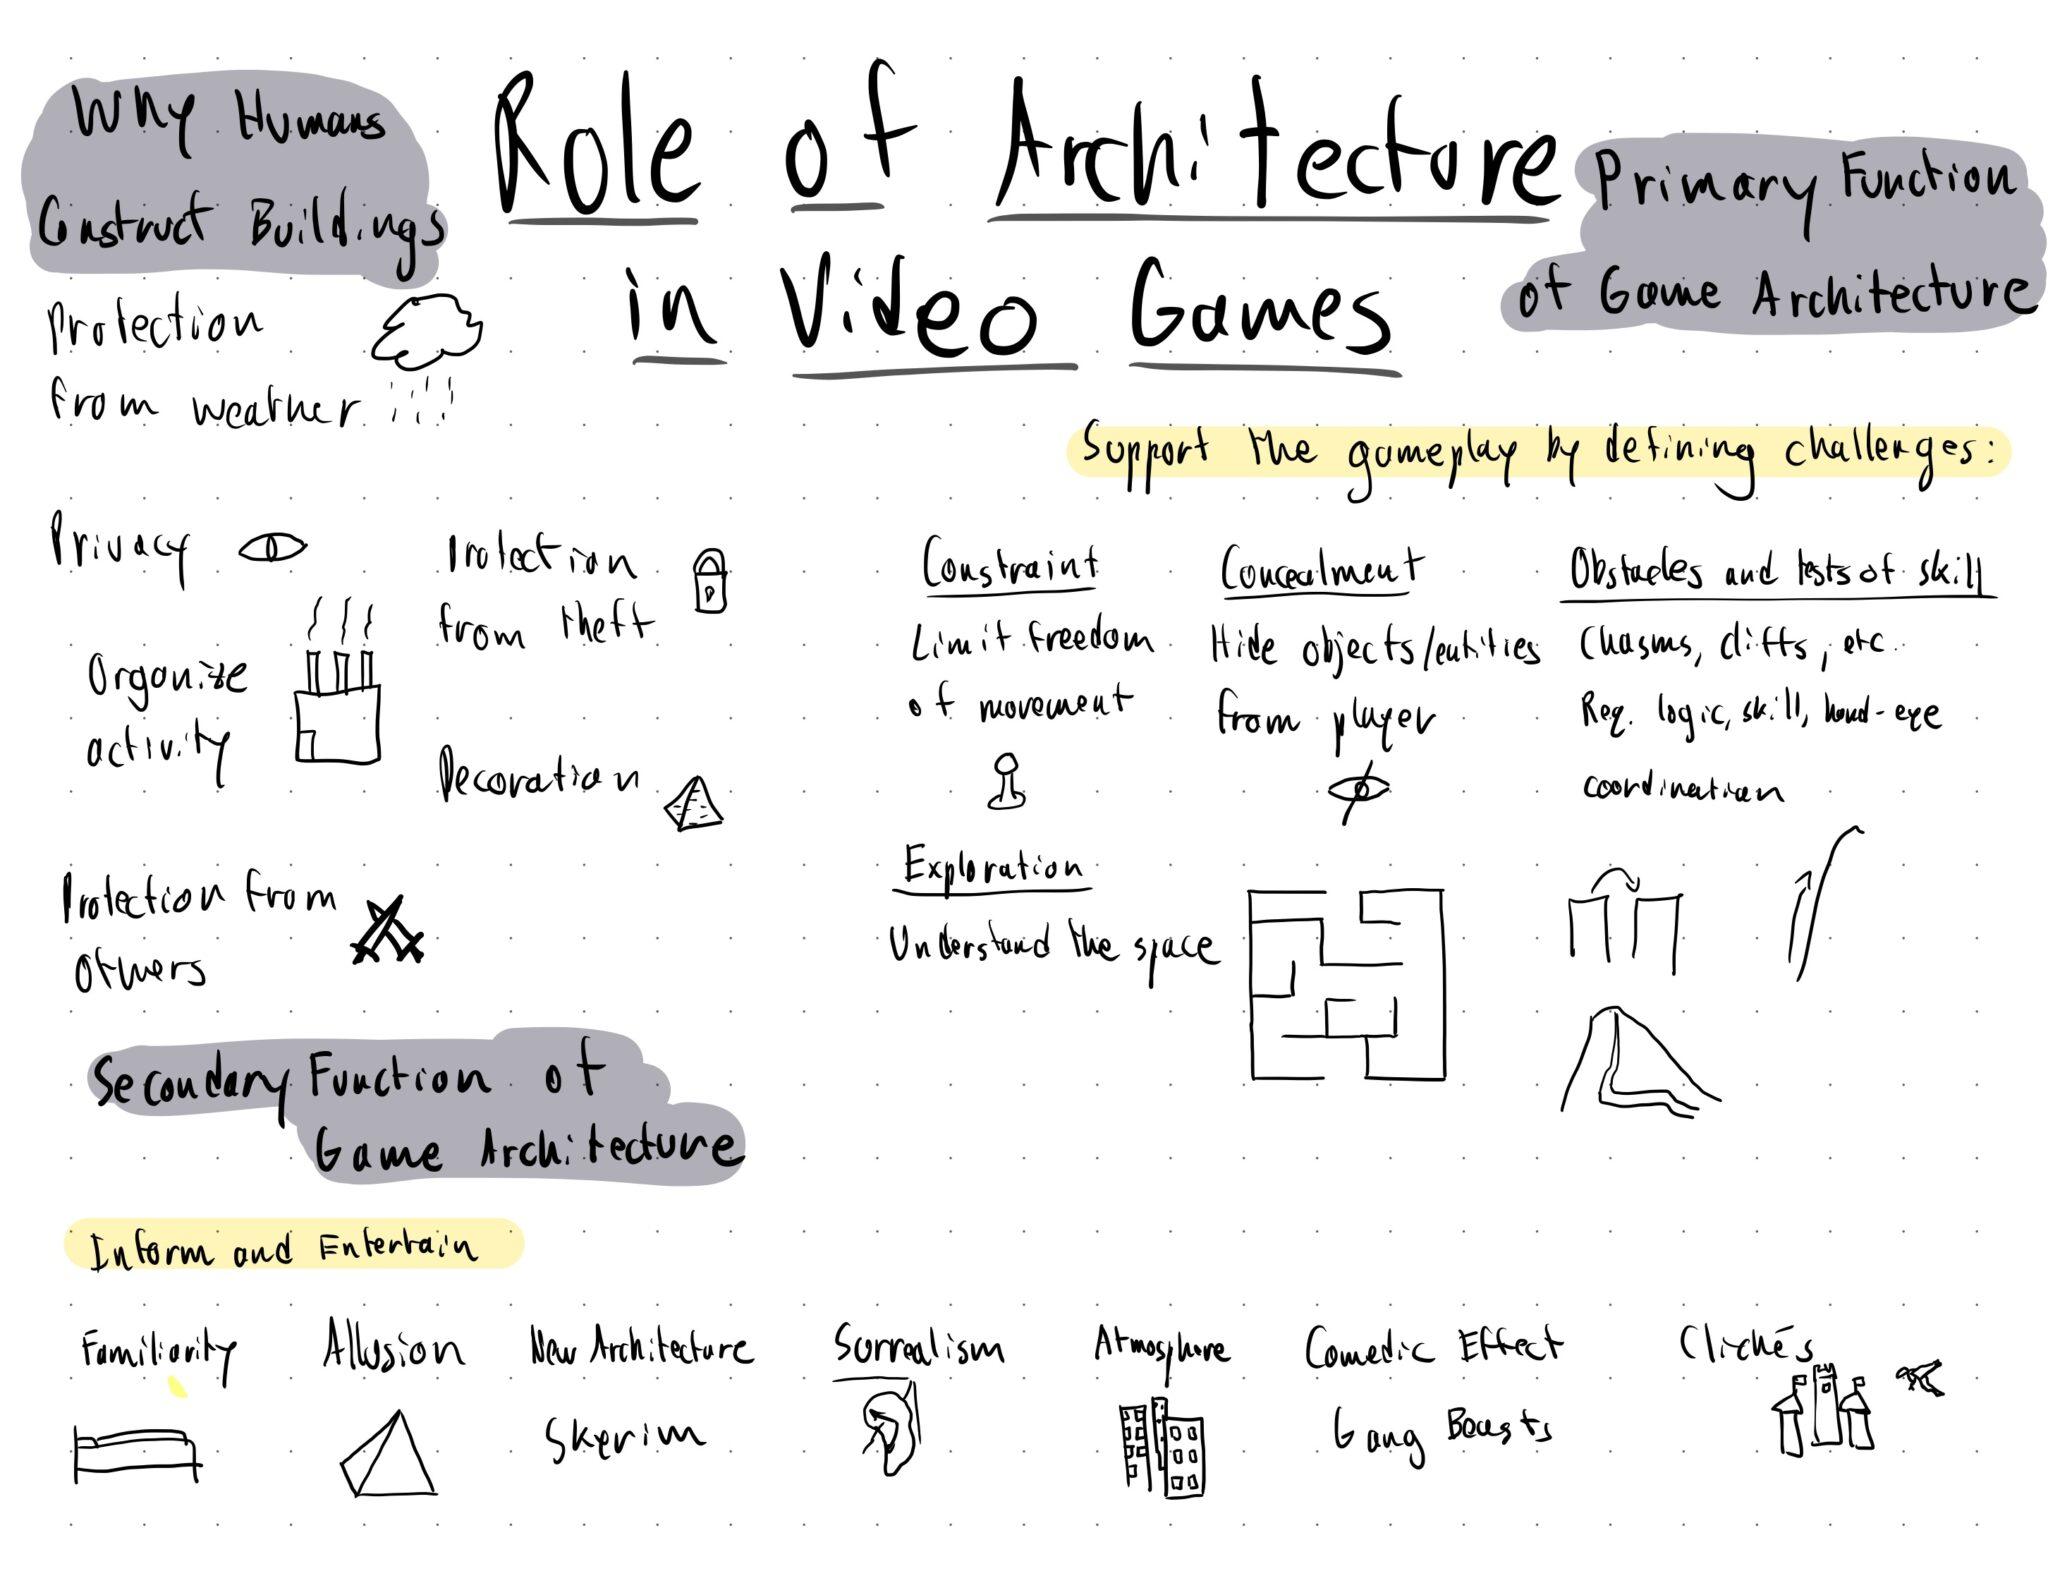 Role of Architecture
in Video Games
Why Humans
Construct Buildings
Protection
from weather
Privacy
Protection
from theft
Organize
activity
Decoration
Protection from
others
Primary Function
of Game Architecture
Support the gameplay by defining challenges:
Constraint
Limit freedom
of movement
Concealment
Hide objects/entities
from player
Obstacles and tests of skill
Chasms, cliffs, etc.
Req. logic, skill, hand-eye
coordination
Exploration
Understand the space
Secondary Function of
Game Architecture
Inform and Entertain
Familiarity
Allusion
New Architecture
Skyrim
Surrealism
Atmosphere
Comedic Effect
Gang Beasts
Clichés